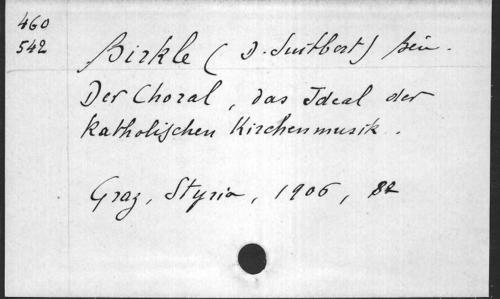 460
542
Birkle ( D. Suitbert)
Der Choral, das Ideal der
katholischen Kirchenmusik.
Graz, Styria, 1906, 8º